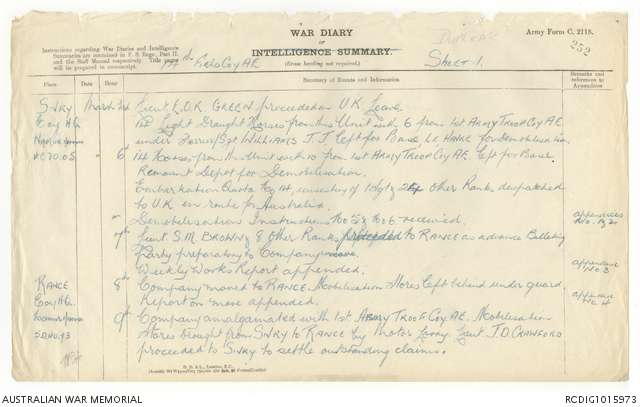 WAR DIARY
or
INTELLIGENCE SUMMARY.
(Erase heading not required).
Army Form C. 2118.
252
Instructions regarding War Diaries and Intelligence
Summaries are contained in F. S. Regs., Part II.
and the Staff Manual respectively. Title pages
will be prepared in manuscript.
Field Coy A.E.
Sheet 1.
Place
Date
Hour
Summary of Events and Information
Remarks and
references to
Appendices
SIVRY March Lieut. E.O.R. GREEN proceeded on U.K. Leave
Coy HQ 14 Light Draught Horses from this Unit with 6 from 1st ARMY TROOP COY A.E.
under Farrier/Sgt WILLIAMS J.J. left for Base LE HAVRE for Demobilisation.
6 14 horses from this Unit with 10 from 1st ARMY TROOP COY A.E. left for Base
Remount Depot for Demobilisation.
Embarkation Quota No 14, consisting of 1 Sgt & 24 Other Ranks despatched
to U.K. en route for Australia.
" Demobilisation Instructions Nos 5 & 6 received. appendices No. 1 & 2
7th Lieut. S.M. BROWN & 8 Other Ranks proceeded to RANCE as advance Billeting
Party preparatory to Company move.
Weekly Works Report appended. appendix No 3
RANCE 8th Company moved to RANCE. Mobilisation Stores left behind under guard.
Coy HQ. Report on move appended. appendix No 4
9th Company amalgamated with 1st ARMY TROOP COY A.E. Mobilisation
Stores brought from SIVRY to RANCE by Motor Lorry. Lieut J.D. CRAWFORD
proceeded to SIVRY to settle outstanding claims.
D. D. & L., London, E.C.
AUSTRALIAN WAR MEMORIAL
RCDIG1015973